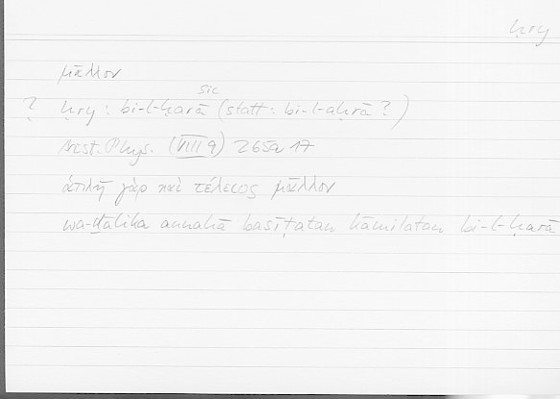 ḥry
μᾶλλον
sic
? ḥry : bi-l-ḥarā (statt : bi-l-aḥrā ?)
Arist. Phys. (VIII 9) 265a 17
ἁπλῆ γὰρ καὶ τέλειος μᾶλλον
wa-ḏālika annahā basīṭatan kāmilatan bi-l-ḥarā